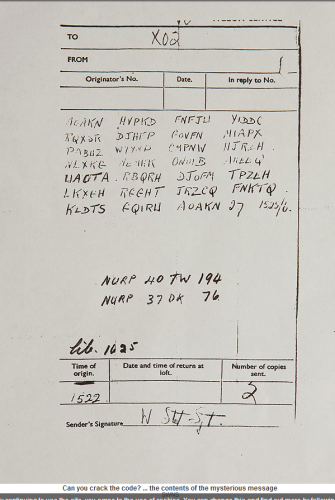 TO X02
FROM
Originator's No. Date. In reply to No.
AOAKN HVPKD FNFJU YIDDC
RQXSR DJHFP GOVFN MIAPX
PABUZ WYYNP CMPNW HJRZH
NLXKG MEMKK ONOIB AKEEQ
UAOTA RBQRH DJOFM TPZEH
LKXGH RGGHT JRZCQ FNKTQ
KLDTS GQIRU AOAKN 27 1525/6.
NURP 40 TW 194
NURP 37 DK 76
lib. 1625
Time of origin. Date and time of return at loft. Number of copies sent.
1522 2
Sender's Signature W
Can you crack the code? ... the contents of the mysterious message